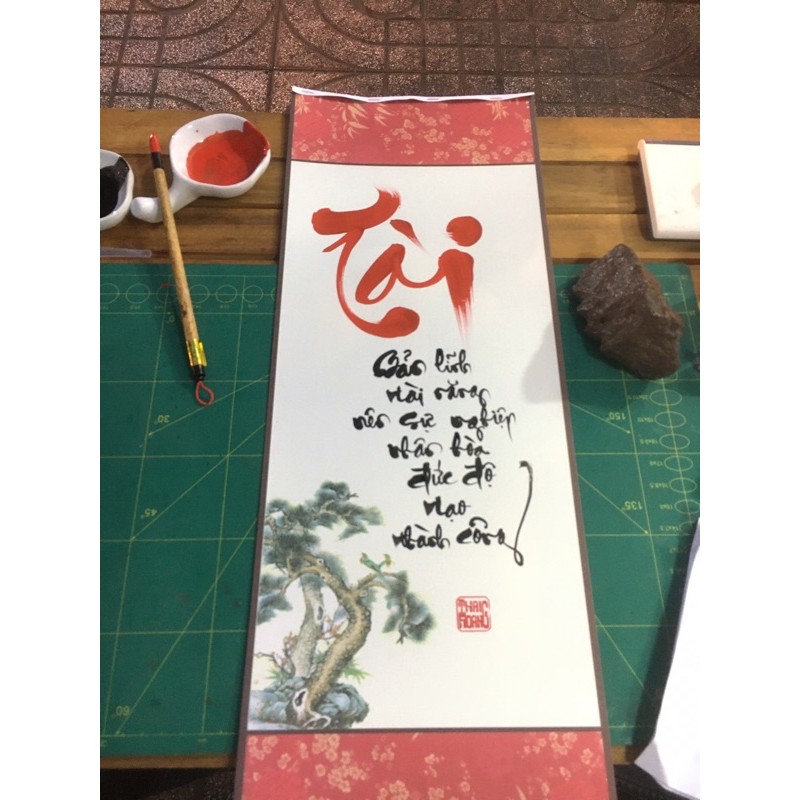 Tài
Bản lĩnh
tài năng
nên sự nghiệp
nhân hòa
đức độ
tạo
thành công
30°
45°
60°
150°
135°